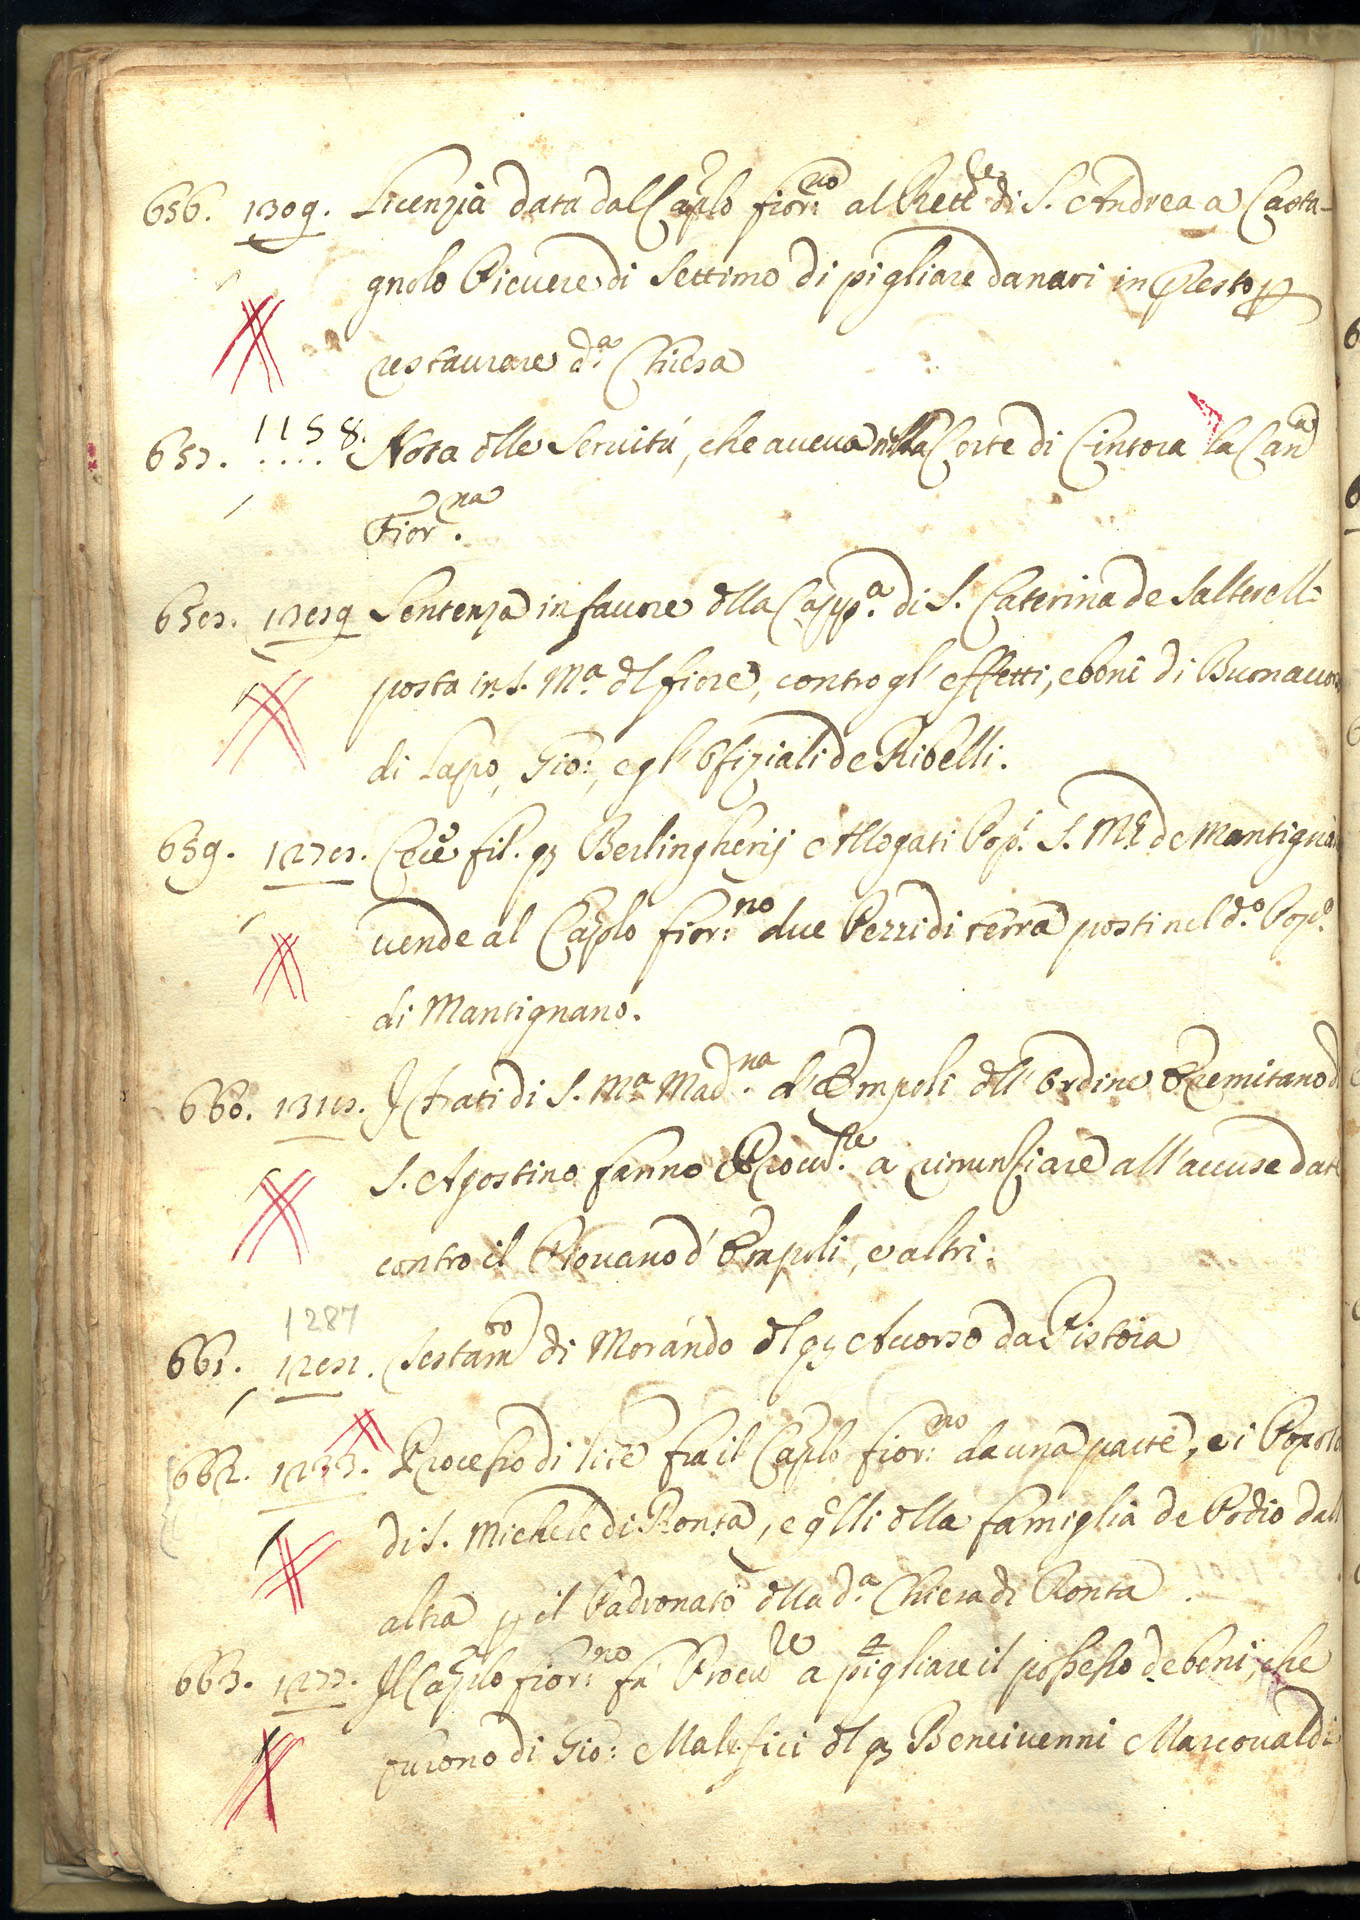 656. 1309. Licenzia data dal Caplo fior:no al Rett:re di S. Andrea a Casta-
gnolo Pieuere di Settimo di pigliare danari in Presto p
restaurare d.a Chiesa
657. 1158. Nota dlle Seruitú, che aueua nella Corte di Cintoia la Can.a
Fior.na
658. Sentenza in fauore dlla Capp.a di S. Caterina de Salterell:
posta in S. M.a dl fiore, contro gl' effetti, e beni di
di Lapo, Gio:, e gl' Ofiziali de Ribelli.
659. 1278. fil. q Berlingherij Allogati Pop.i S. M.e de Mantigna
uende al Caplo fior:no due Pezzi di terra posti nel d.o Pop.o
di Mantignano.
660. I frati di S. M.a Mad.na d'Empoli dll' Ordine Eremitano d
S. Agostino fanno Procu.re a rinunziare all'accuse dat
contro il Piouano d' Empoli, e altri.
1287
661. Testam.to di Morando dl q Auorso da Pistoia
662. 1233. Processo di lite fra il Caplo fior:no da una parte, e i Popol
di S. Michele di Ronta, e qlli dlla famiglia de Podio dall
altra p il Padronato dlla d.a Chiesa di Ronta.
663. 1277. Il Caplo fior:no fa Procu.re a pigliare il possesso de beni, che
furono di Gio: Malefici dl q Benciuenni Marcoualdi